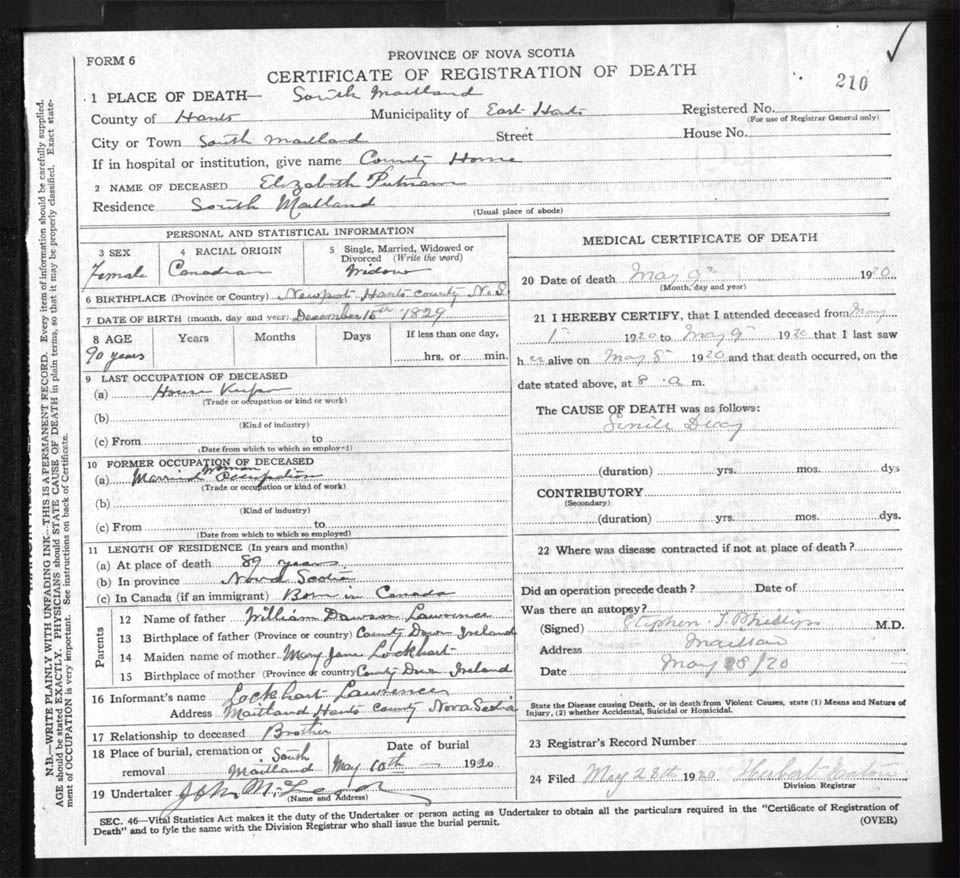 FORM 6
PROVINCE OF NOVA SCOTIA
CERTIFICATE OF REGISTRATION OF DEATH
210
1 PLACE OF DEATH— South Maitland
County of Hants Municipality of East Hants Registered No.
(For use of Registrar General only)
City or Town South Maitland Street House No.
If in hospital or institution, give name County Home
2 NAME OF DECEASED Elizabeth Putnam
Residence South Maitland
(Usual place of abode)
PERSONAL AND STATISTICAL INFORMATION
3 SEX 4 RACIAL ORIGIN 5 Single, Married, Widowed or Divorced (Write the word)
Female Canadian Widow
6 BIRTHPLACE (Province or Country) Newport Hants County N.S
7 DATE OF BIRTH (month, day and year) December 15th 1829
8 AGE Years Months Days If less than one day,
90 years hrs. or min.
9 LAST OCCUPATION OF DECEASED
(a) House Keeper
(Trade or occupation or kind or work)
(b)
(Kind of industry)
(c) From to
(Date from which to which so employed)
10 FORMER OCCUPATION OF DECEASED
(a) Married Woman Occupation
(Trade or occupation or kind of work)
(b)
(Kind of industry)
(c) From to
(Date from which to which so employed)
11 LENGTH OF RESIDENCE (In years and months)
(a) At place of death 89 years
(b) In province Nova Scotia
(c) In Canada (if an immigrant) Born in Canada
Parents
12 Name of father William Dawson Lawrence
13 Birthplace of father (Province or country) County Down Ireland
14 Maiden name of mother Mary Jane Lockhart
15 Birthplace of mother (Province or country) County Down Ireland
16 Informant's name Lockhart Lawrence
Address Maitland Hants County Nova Scotia
17 Relationship to deceased Brother
18 Place of burial, cremation or removal South Maitland Date of burial May 10th 1920
19 Undertaker John M.
(Name and Address)
MEDICAL CERTIFICATE OF DEATH
20 Date of death May 9th 1920
(Month, day and year)
21 I HEREBY CERTIFY, that I attended deceased from May
1st 1920 to May 9th 1920 that I last saw
her alive on May 8th 1920 and that death occurred, on the
date stated above, at 8 a m.
The CAUSE OF DEATH was as follows:
Senile Decay
(duration) yrs. mos. dys
CONTRIBUTORY
(Secondary)
(duration) yrs. mos. dys.
22 Where was disease contracted if not at place of death?
Did an operation precede death? Date of
Was there an autopsy?
(Signed) Stephen J. Phillips M.D.
Address Maitland
Date May 28/20
State the Disease causing Death, or in death from Violent Causes, state (1) Means and Nature of
Injury, (2) whether Accidental, Suicidal or Homicidal.
23 Registrar's Record Number
24 Filed May 28th 1920 Herbert
Division Registrar
SEC. 46—Vital Statistics Act makes it the duty of the Undertaker or person acting as Undertaker to obtain all the particulars required in the "Certificate of Registration of
Death" and to fyle the same with the Division Registrar who shall issue the burial permit.
(OVER)
N.B.—WRITE PLAINLY WITH UNFADING INK—THIS IS A PERMANENT RECORD. Every item of information should be carefully supplied.
AGE should be stated EXACTLY. PHYSICIANS should STATE CAUSE OF DEATH in plain terms, so that it may be properly classified. Exact state-
ment of OCCUPATION is very important. See instructions on back of Certificate.